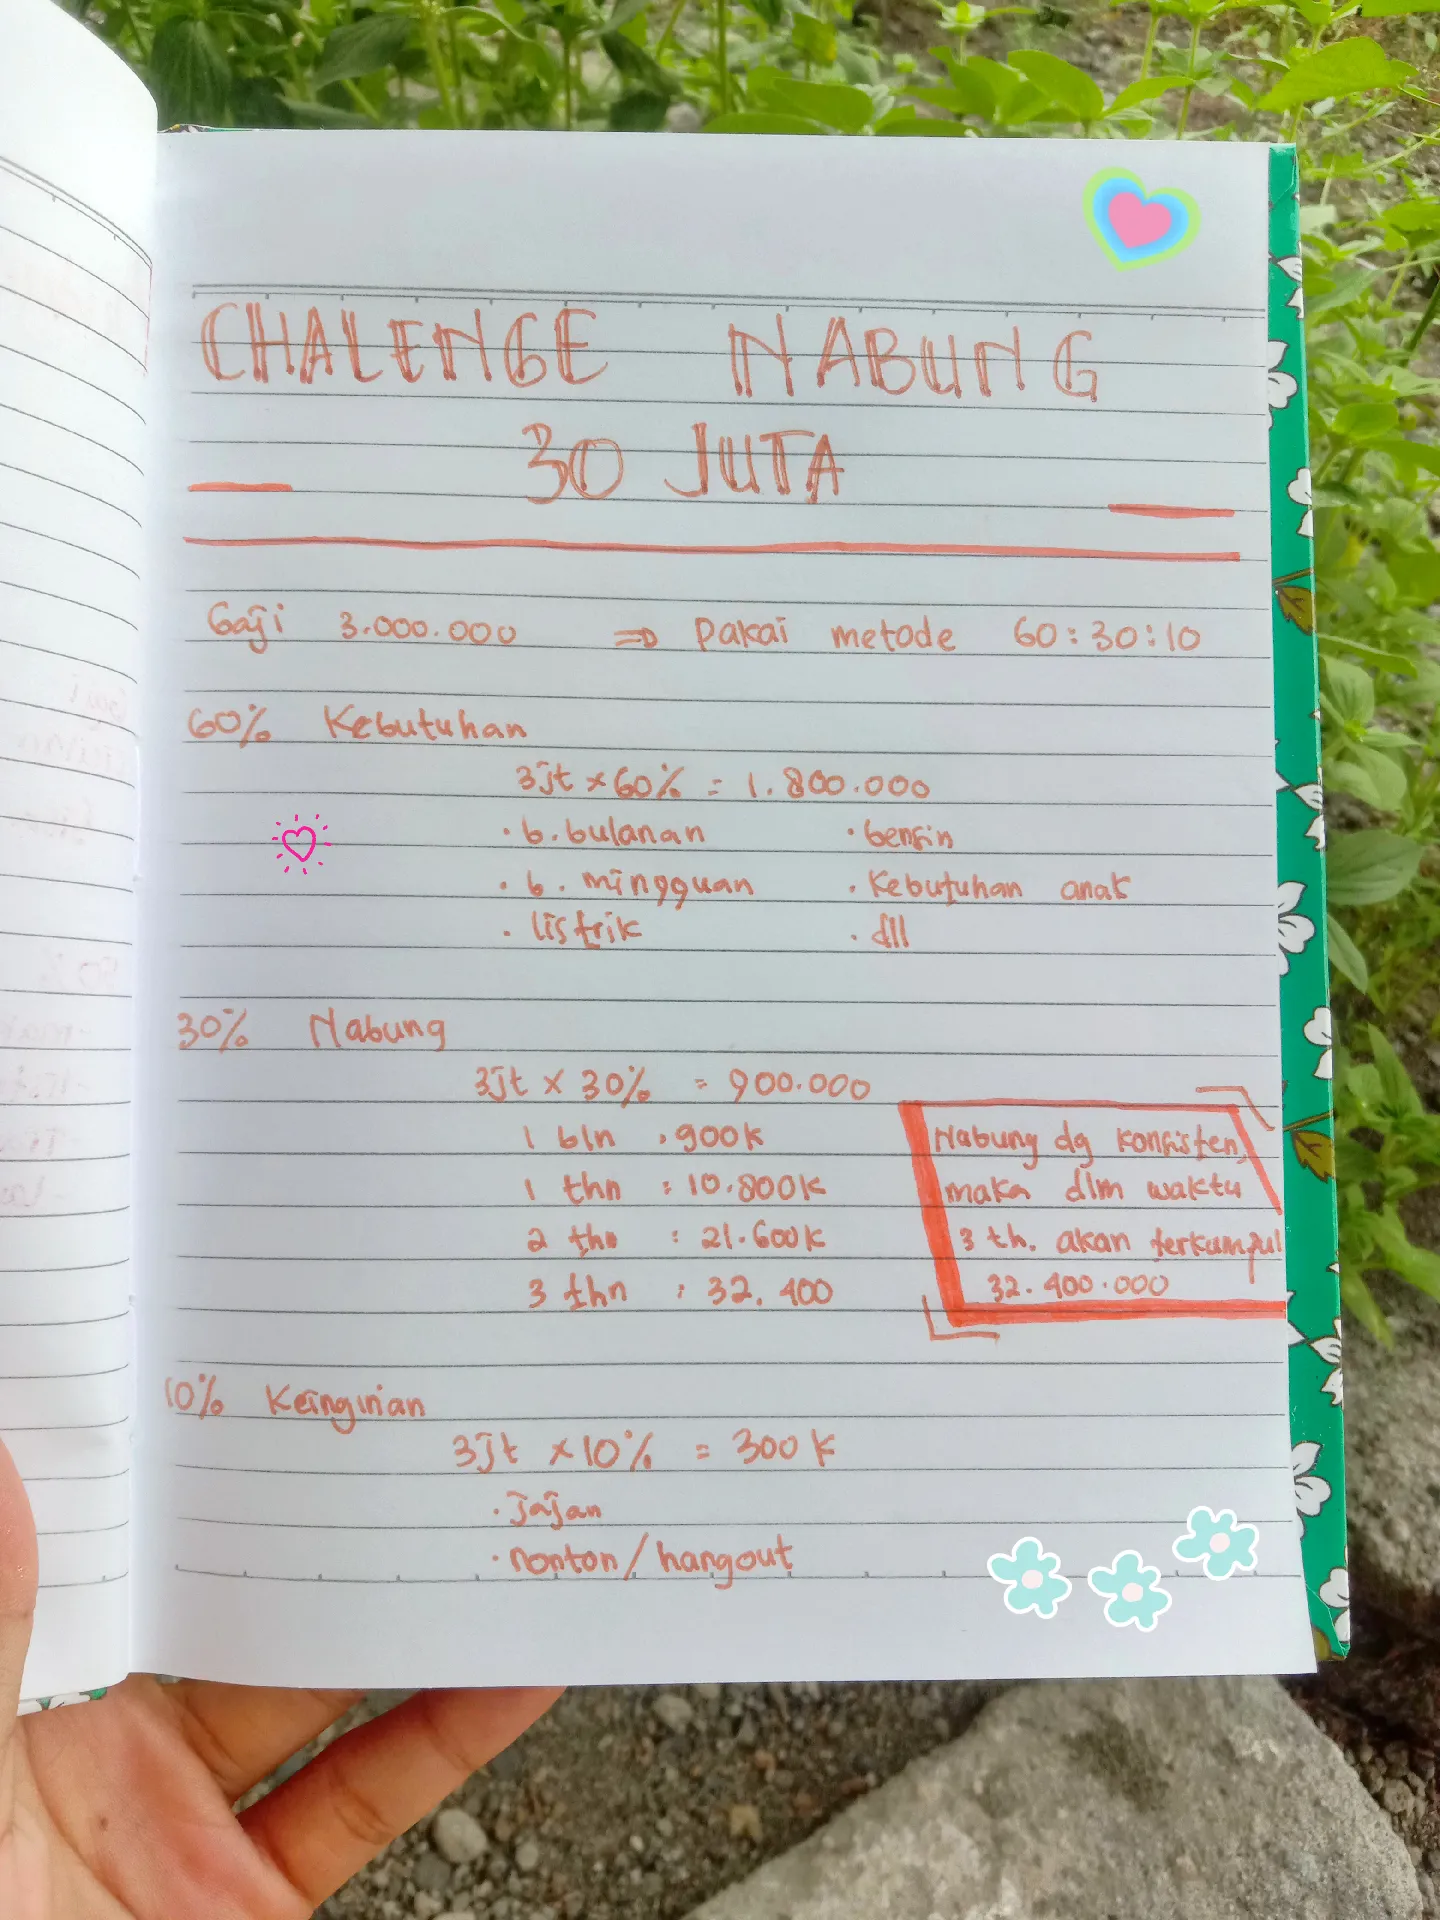 CHALENGE NABUNG
30 JUTA
Gaji 3.000.000 ⇒ Pakai metode 60:30:10
60% Kebutuhan
3jt × 60% = 1.800.000
· b. bulanan · bensin
· b. mingguan · Kebutuhan anak
· listrik · dll
30% Nabung
3jt × 30% = 900.000
1 bln : 900K
1 thn : 10.800K
2 thn : 21.600K
3 thn : 32.400
Nabung dg konsisten,
maka dlm waktu
3 th. akan terkumpul
32.400.000
10% Keinginan
3jt × 10% = 300K
· jajan
· nonton/hangout